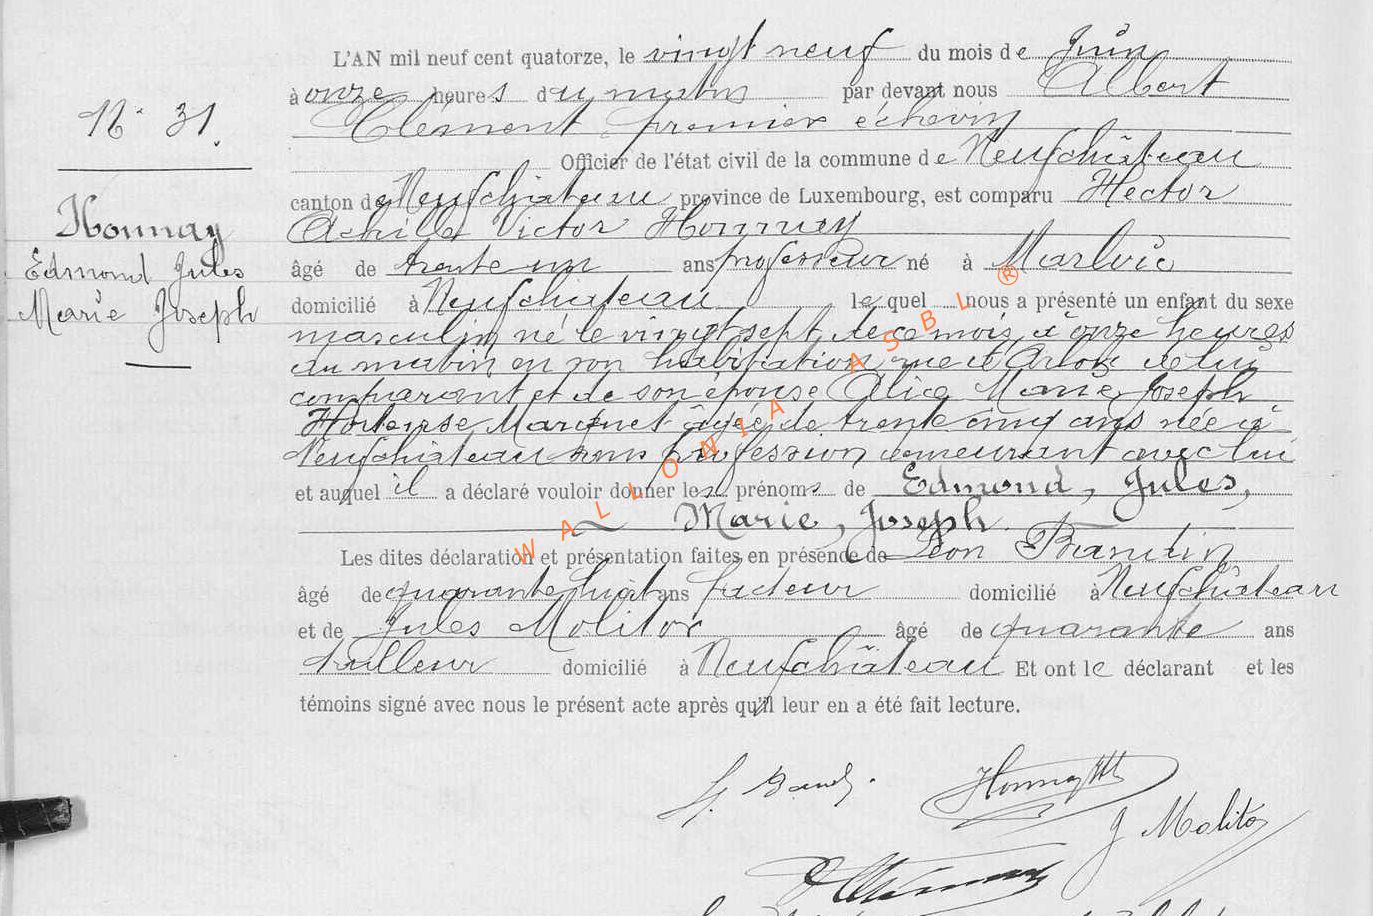 L'AN mil neuf cent quatorze, le vingt neuf du mois de Juin
à onze heures du matin par devant nous Albert
Clément premier échevin
Officier de l'état civil de la commune de Neufchâteau
canton de Neufchâteau province de Luxembourg, est comparu Hector
Achille Victor Honnay
âgé de trente un ans professeur né à Marlvie
domicilié à Neufchateau lequel nous a présenté un enfant du sexe
masculin né le vingt sept de ce mois à onze heures
du matin en son habitation rue d'Arlon de lui
comparant et de son épouse Alice Marie Joseph
Hortense Marquet âgée de trente cinq ans née à
Neufchâteau sans profession demeurant avec lui
et auquel il a déclaré vouloir donner les prénoms de Edmond, Jules,
Marie, Joseph.
Les dites déclaration et présentation faites en présence de Léon
âgé de quarante huit ans facteur domicilié à Neufchâteau
et de Jules Molitor âgé de quarante ans
tailleur domicilié à Neufchâteau Et ont le déclarant et les
témoins signé avec nous le présent acte après qu'il leur en a été fait lecture.
N° 31.
Honnay
Edmond Jules
Marie Joseph
Honnay
J Molitor
WALLONIA ASBL ®